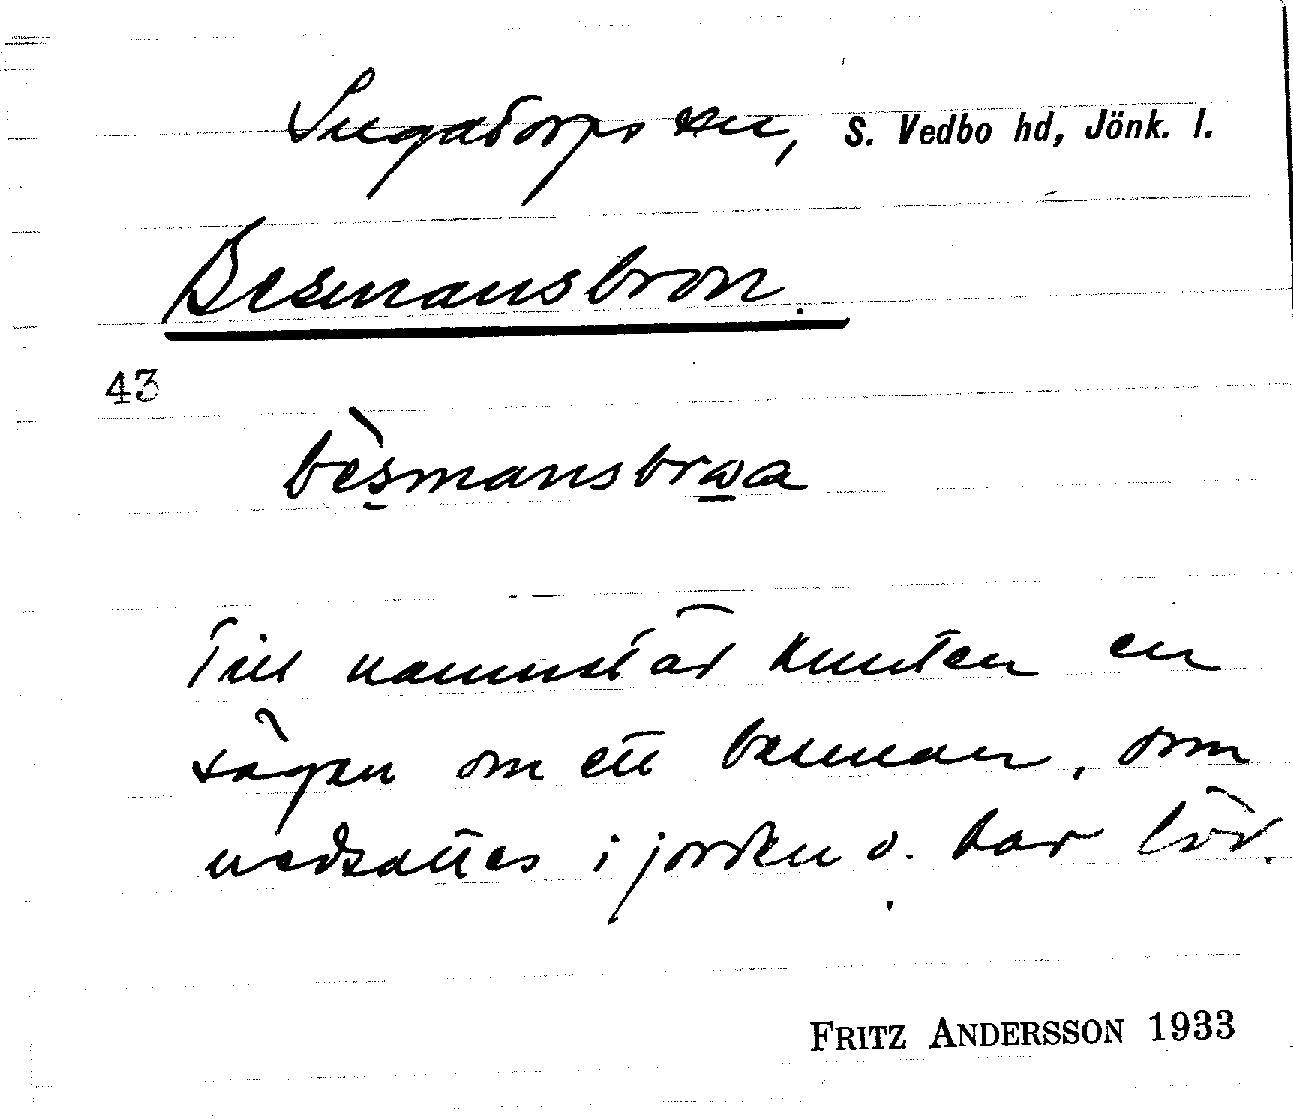 Ingatorps sn, S. Vedbo hd, Jönk. l.
Besmansbron.
43
bèsmansbrωa
Till namnet är knuten en
sägen om ett besman, som
nedsattes i jorden o. bar löv.
FRITZ ANDERSSON 1933